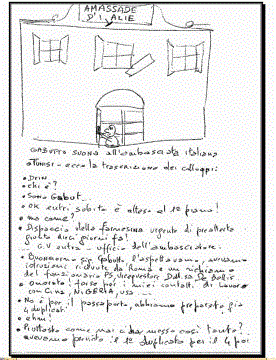 AMASSADE
D'I ALIE
GABUTTO SUONA all'ambasciata italiana
a Tunisi - ecco la trascrizione dei colloqui:
• DRIN
• chi è?
• Sono Gabut...
• OK entri subito è atteso al 1° piano!
• ma come?
• Dispaccio della farnesina urgente di prelletto
giunto dieci giorni fa!
G.V entra ufficio dell'ambasciatore:
• Buongiorno sig Gabutto l'aspettavamo, avevamo
istruzioni ricevute da Roma e un richiamo
del funzionario PS, vicequestore Dott.ssa
• onorato! forse per i miei contatti di lavoro
con Cina, NIGERIA, USA ...
• No è per il passaporto, abbiamo preparato già
4 duplicati
• ehm!
• Piuttosto come mai ci ha messo così tanto?
avevamo perfino il 1° duplicato per il 4